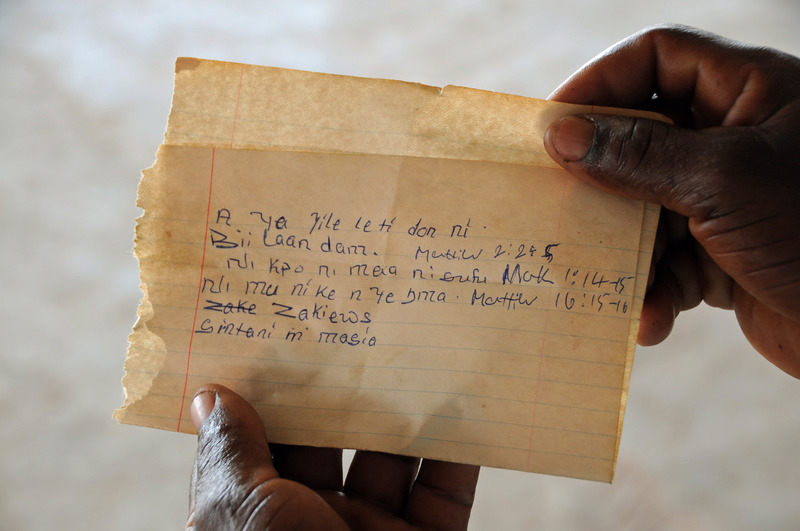 A ya yile leti don ni.
Bii Laan dam. Mattiw 2:2
ni kpo ni meia ni Mak 1:14-15
ni mu ni ke n ye bma. Mattiw 16:15-16
zake Zakiews
Sintani ni masia